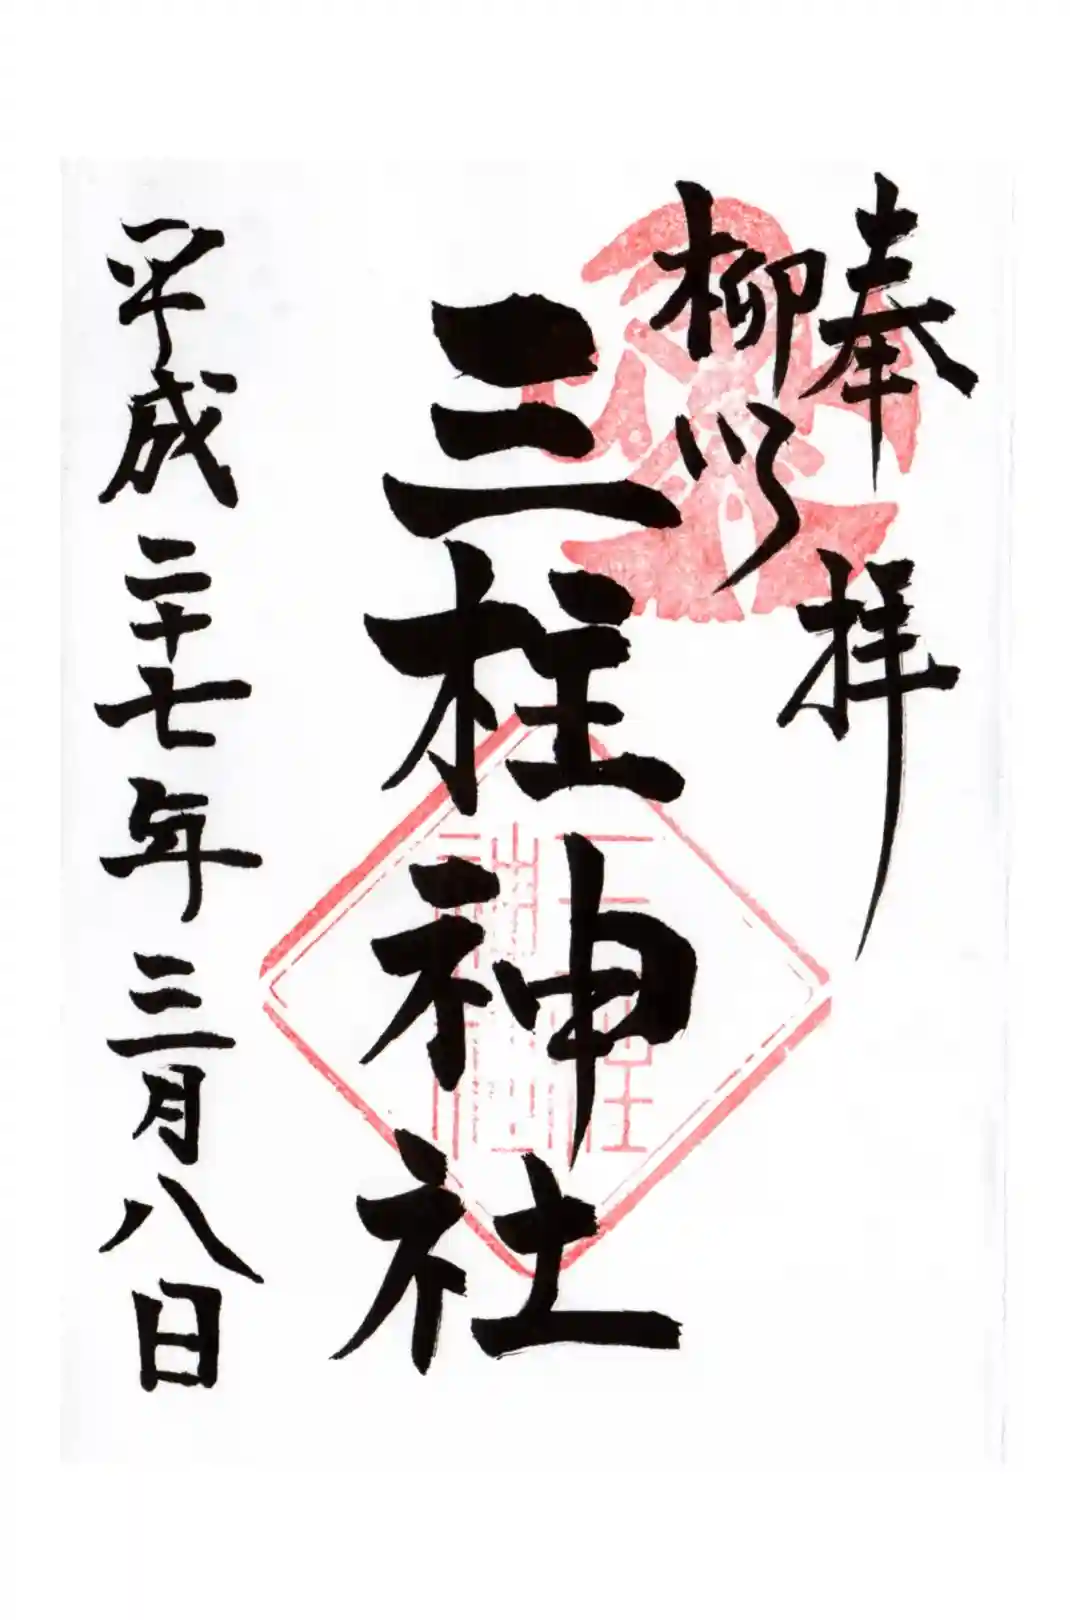 奉拝
柳川
三柱神社
平成二十七年三月八日